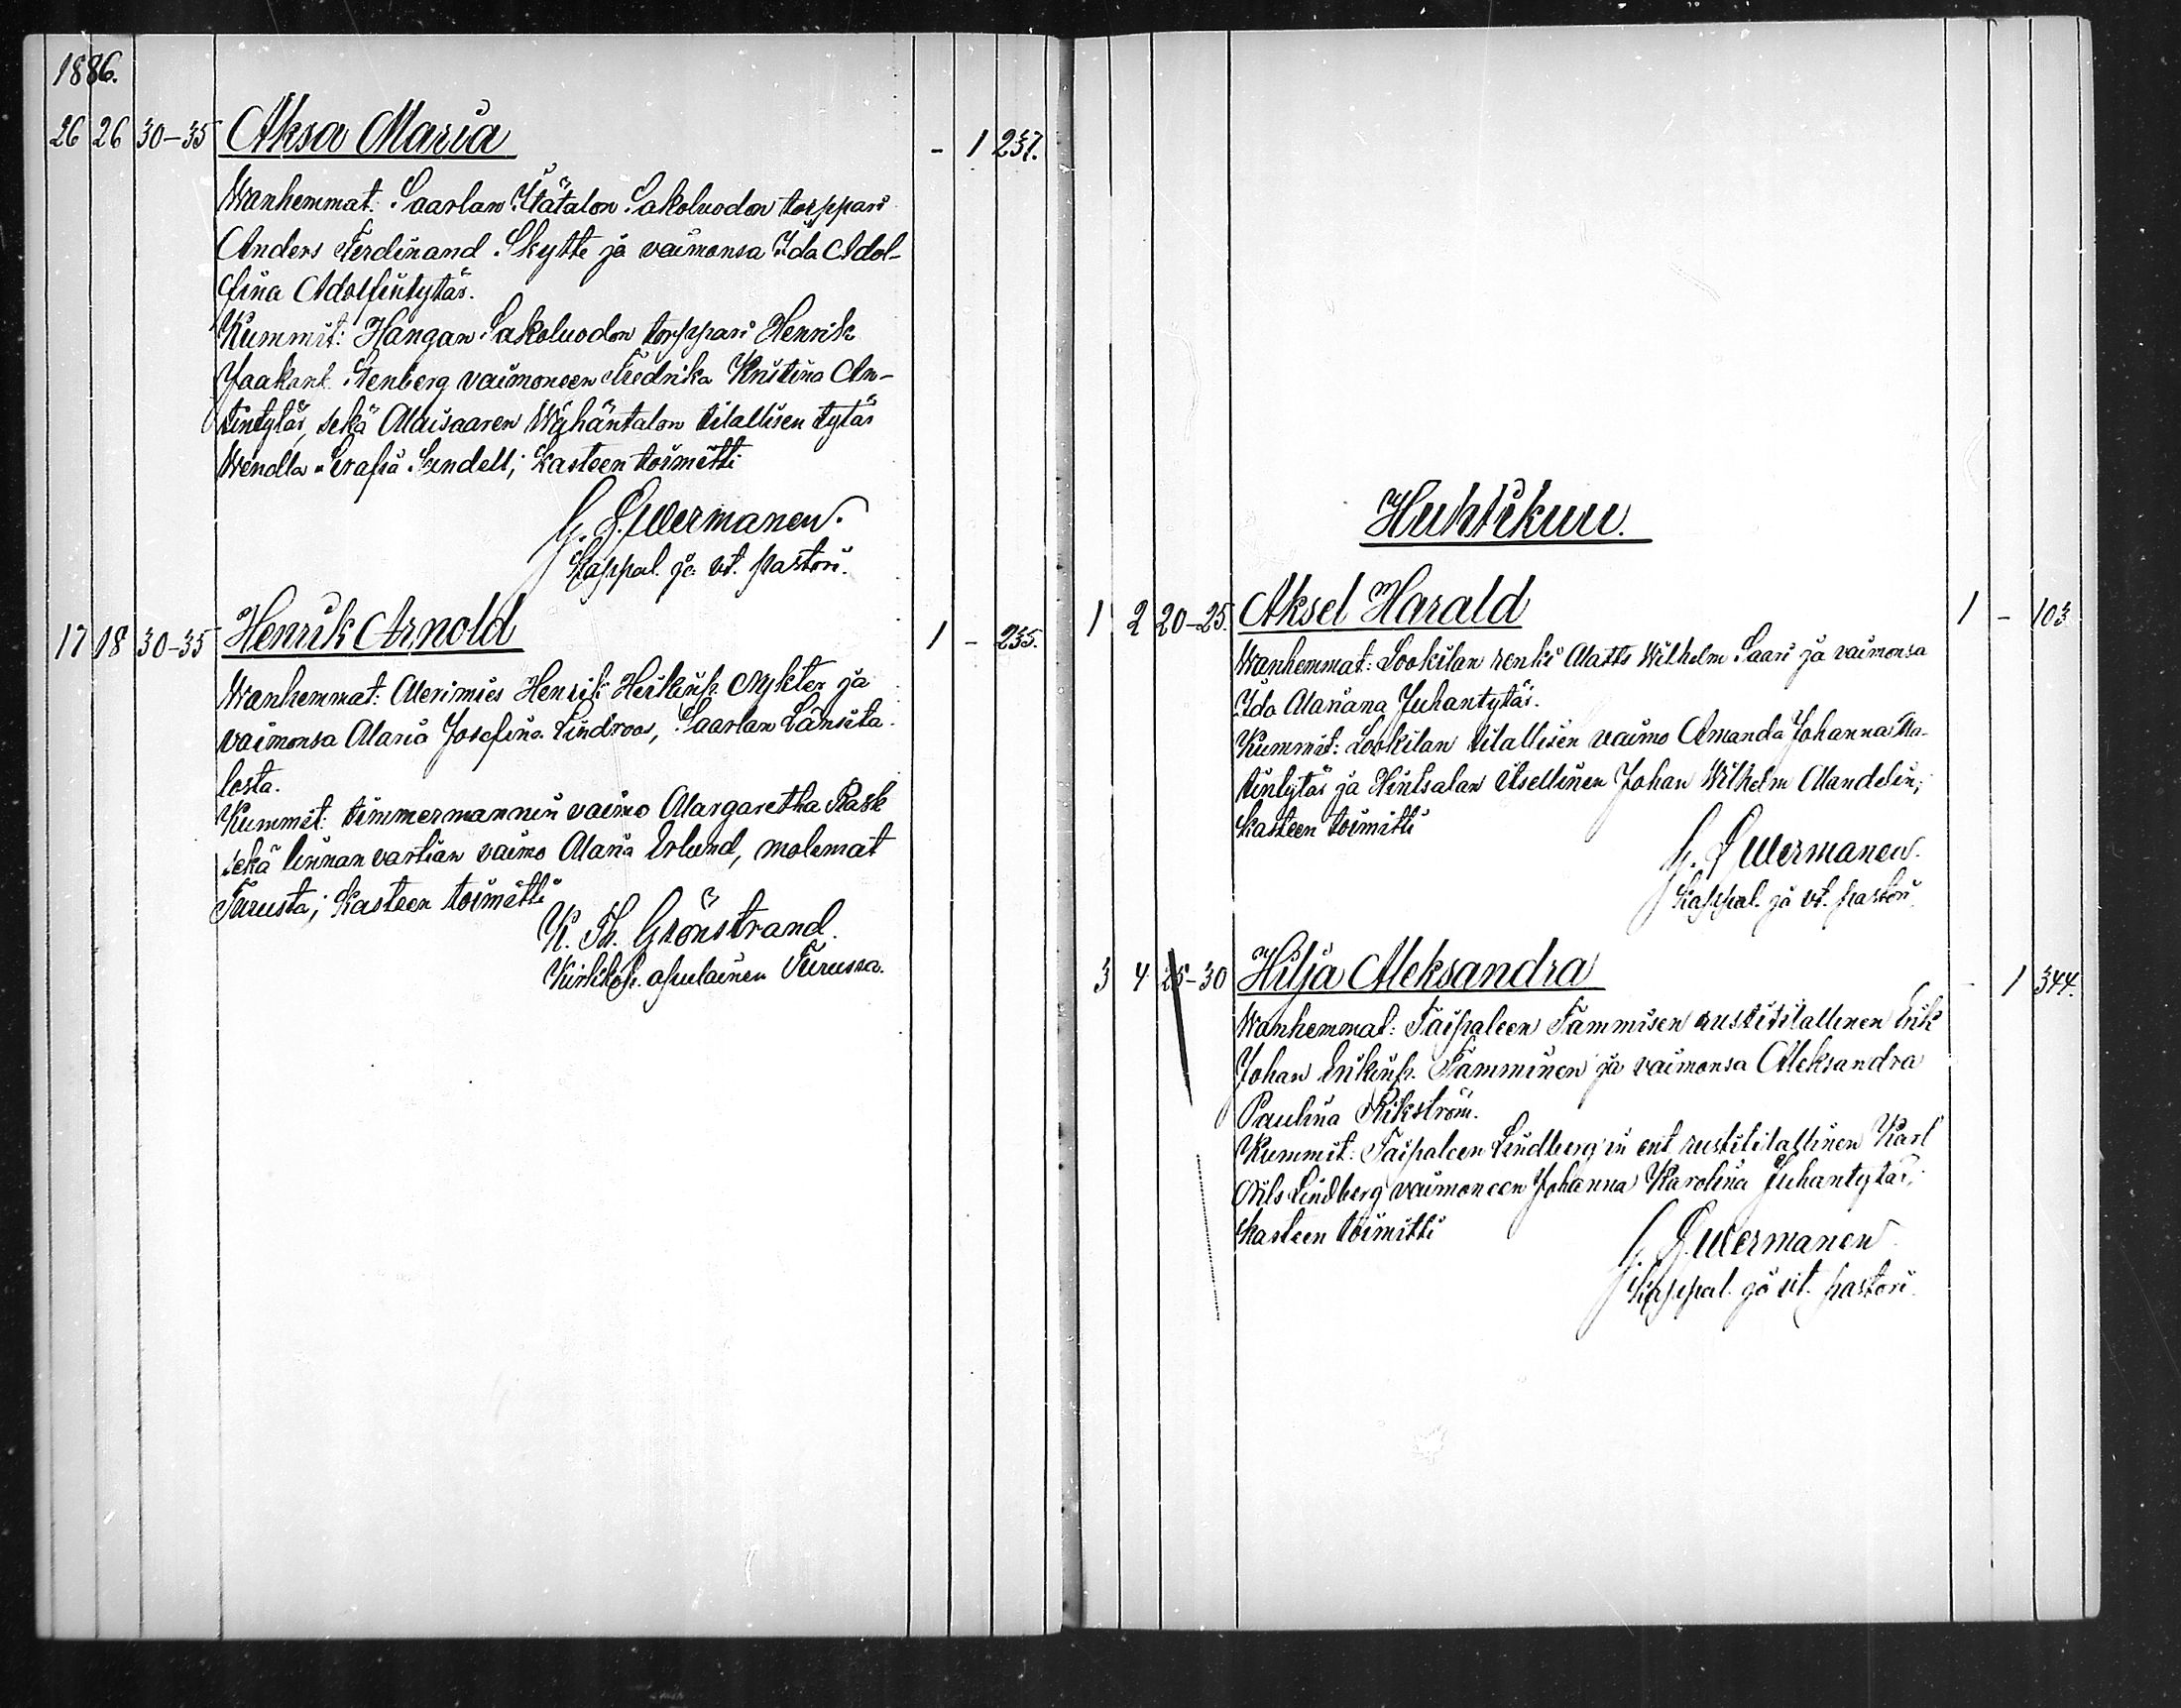 1886.
26 26 30-35 Aksa Maria - 1 237.
Wanhemmat: Saarlan Ylätalon Sakoluodon torppari
Anders Ferdinand Skytte ja vaimonsa Ida Adol-
fina Adolfintytär.
Kummit: Hangan Sakoluodon torppari Henrik
Jaakank Stenberg vaimoneen Fredrika Kristina An-
tintytär, sekä Maisaaren Wähäntalon tilallisen tytär
Wendla Serafia Sundell; Kasteen toimitti
Kappal. ja vt. pastori.
17 18 30-35 Henrik Arnold 1 - 235.
Wanhemmat: Merimies Henrik Heikinp. Nykter ja
vaimonsa Maria Josefina Lindroos, Saarlan Länsita-
losta.
Kummit: timmermannin vaimo Margaretha Rask
sekä linnan vartian vaimo Maria Erlund, molemat
Turusta; Kasteen toimitti
K. Th. Grönstrand.
Kirkkoh. apulainen Turussa.
Huhtikuu.
1 2 20-25. Aksel Harald 1 - 103
Wanhemmat: Lookilan renki Matts Wilhelm Saari ja vaimonsa
Ida Mariana Juhantytär.
Kummit: Lookilan tilallisen vaimo Amanda Johanna Ma-
tintytär ja Hintsalan itsellinen Johan Wilhelm Mandelin;
Kasteen toimitti
Kappal. ja vt. pastori
3 4 25-30 Hilja Aleksandra - 1 344.
Wanhemmat: Taipaleen Tammisen rustitilallinen Erik
Johan Erikinp. Tamminen ja vaimonsa Aleksandra
Paulina Wikström.
Kummit: Taipaleen Lindberg'in ent rustitilallinen Karl
Nils Lindberg vaimoneen Johanna Karolina Juhantytär;
Kasteen toimitti
Kappal. ja vt. pastori.